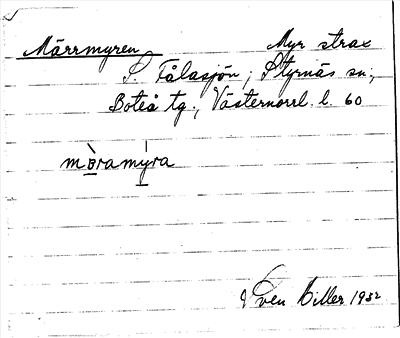 Märrmyren Myr strax
S. Fålasjön; Styrnäs sn.,
Boteå tg., Västernorrl. l. 60
mö̀ramýra
Sven Hiller 1932